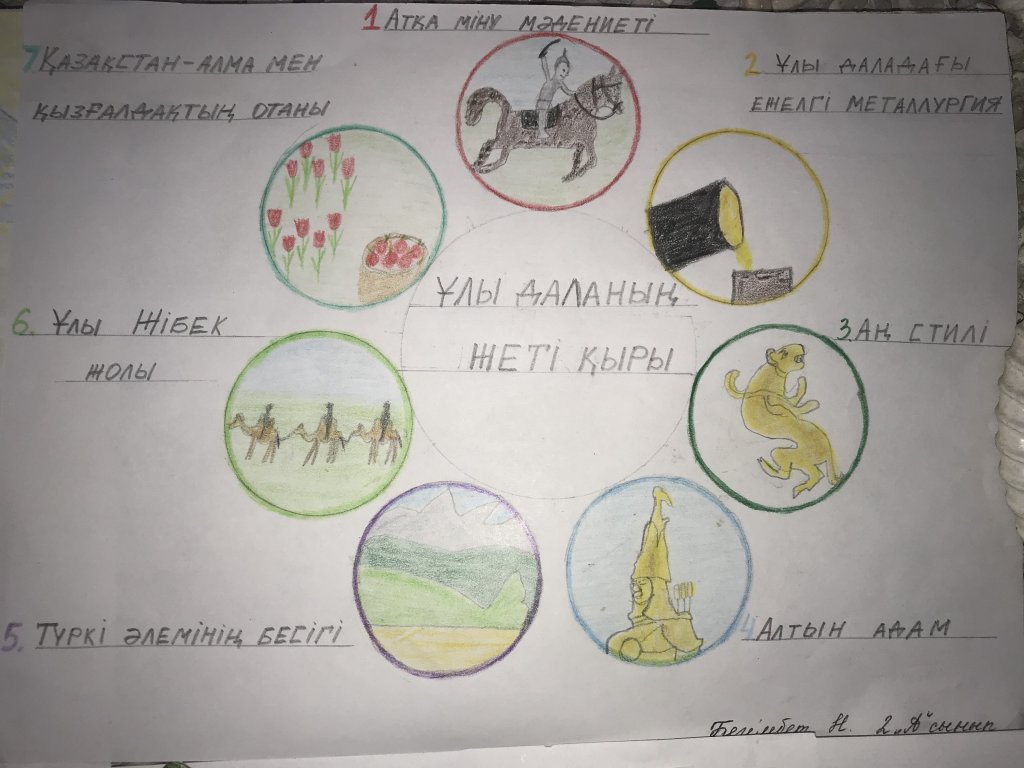 1 АТҚА МІНУ МӘДЕНИЕТІ
2 ҰЛЫ ДАЛАДАҒЫ
ЕЖЕЛГІ МЕТАЛЛУРГИЯ
3 АҢ СТИЛІ
4 АЛТЫН АДАМ
5. ТҮРКІ ӘЛЕМІНІҢ БЕСІГІ
6. ҰЛЫ ЖІБЕК
ЖОЛЫ
7 ҚАЗАҚСТАН-АЛМА МЕН
ҚЫЗҒАЛДАҚТЫҢ ОТАНЫ
ҰЛЫ ДАЛАНЫҢ
ЖЕТІ ҚЫРЫ
Бегімбет Н. 2 „А" сынып